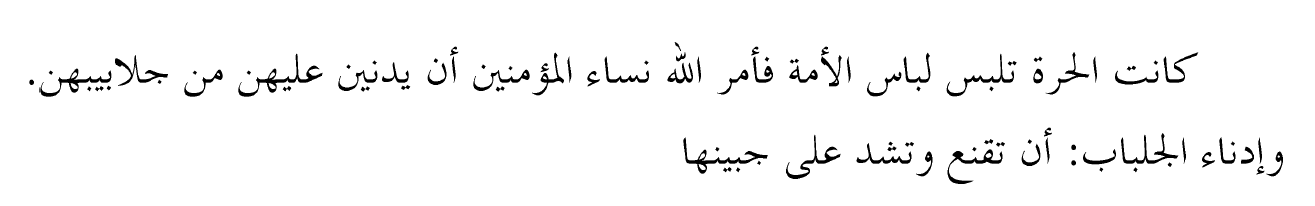 كانت الحرة تلبس لباس الأمة فأمر الله نساء المؤمنين أن يدنين عليهن من جلابيبهن.
وإدناء الجلباب: أن تقنع وتشد على جبينها